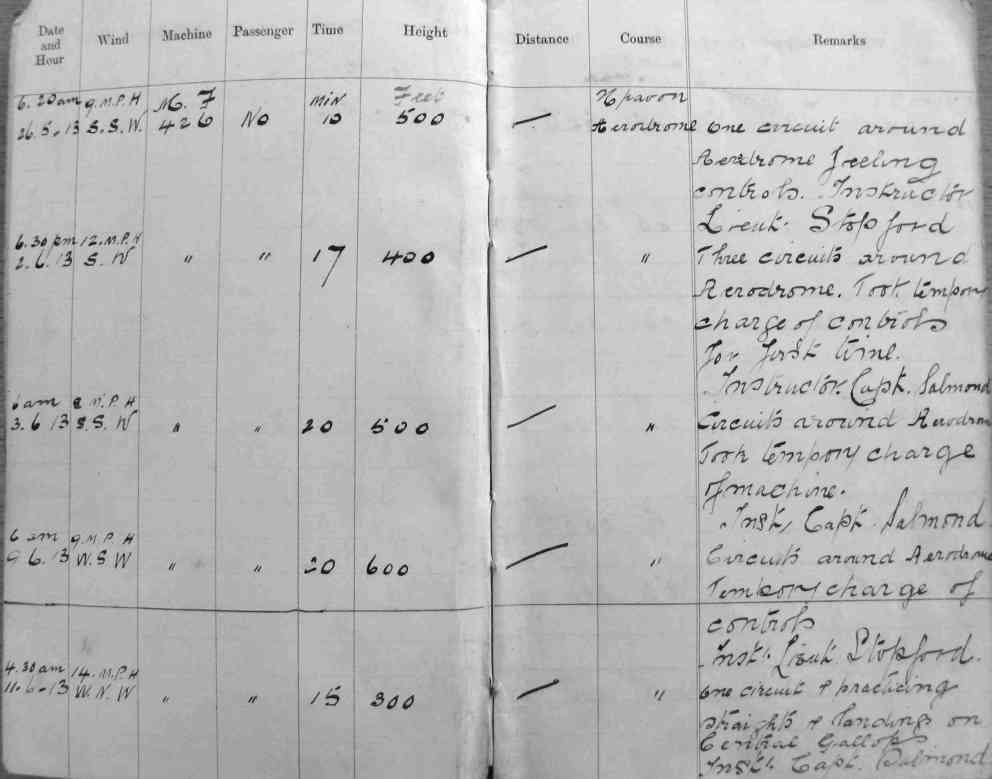 Date and Hour Wind Machine Passenger Time Height Distance Course Remarks
6.20am 9.M.P.H M.F MIN Feet Upavon
26.5.13 S.S.W. 426 No 10 500 — Aerodrome One circuit around
Aerodrome feeling
controls. Instructor
Lieut. Stopford
6.30pm 12.M.P.H
2.6.13 S.W " " 17 400 — " Three circuits around
Aerodrome. Took tempory
charge of controls
for first time.
Instructor Capt. Salmond
6am 8 M.P.H
3.6.13 S.S.W " " 20 500 — " Circuits around Aerodrom
Took tempory charge
of machine.
Inst, Capt. Salmond.
6am 9.M.P.H
9.6.13 W.S.W " " 20 600 — " Circuits around Aerodrome
Tempory charge of
controls
Inst. Lieut Stopford.
4.30am 14.M.P.H
11.6.13 W.N.W " " 15 300 — " One circuit & practicing
straights & landings on
Central Gallops
Inst. Capt. Salmond